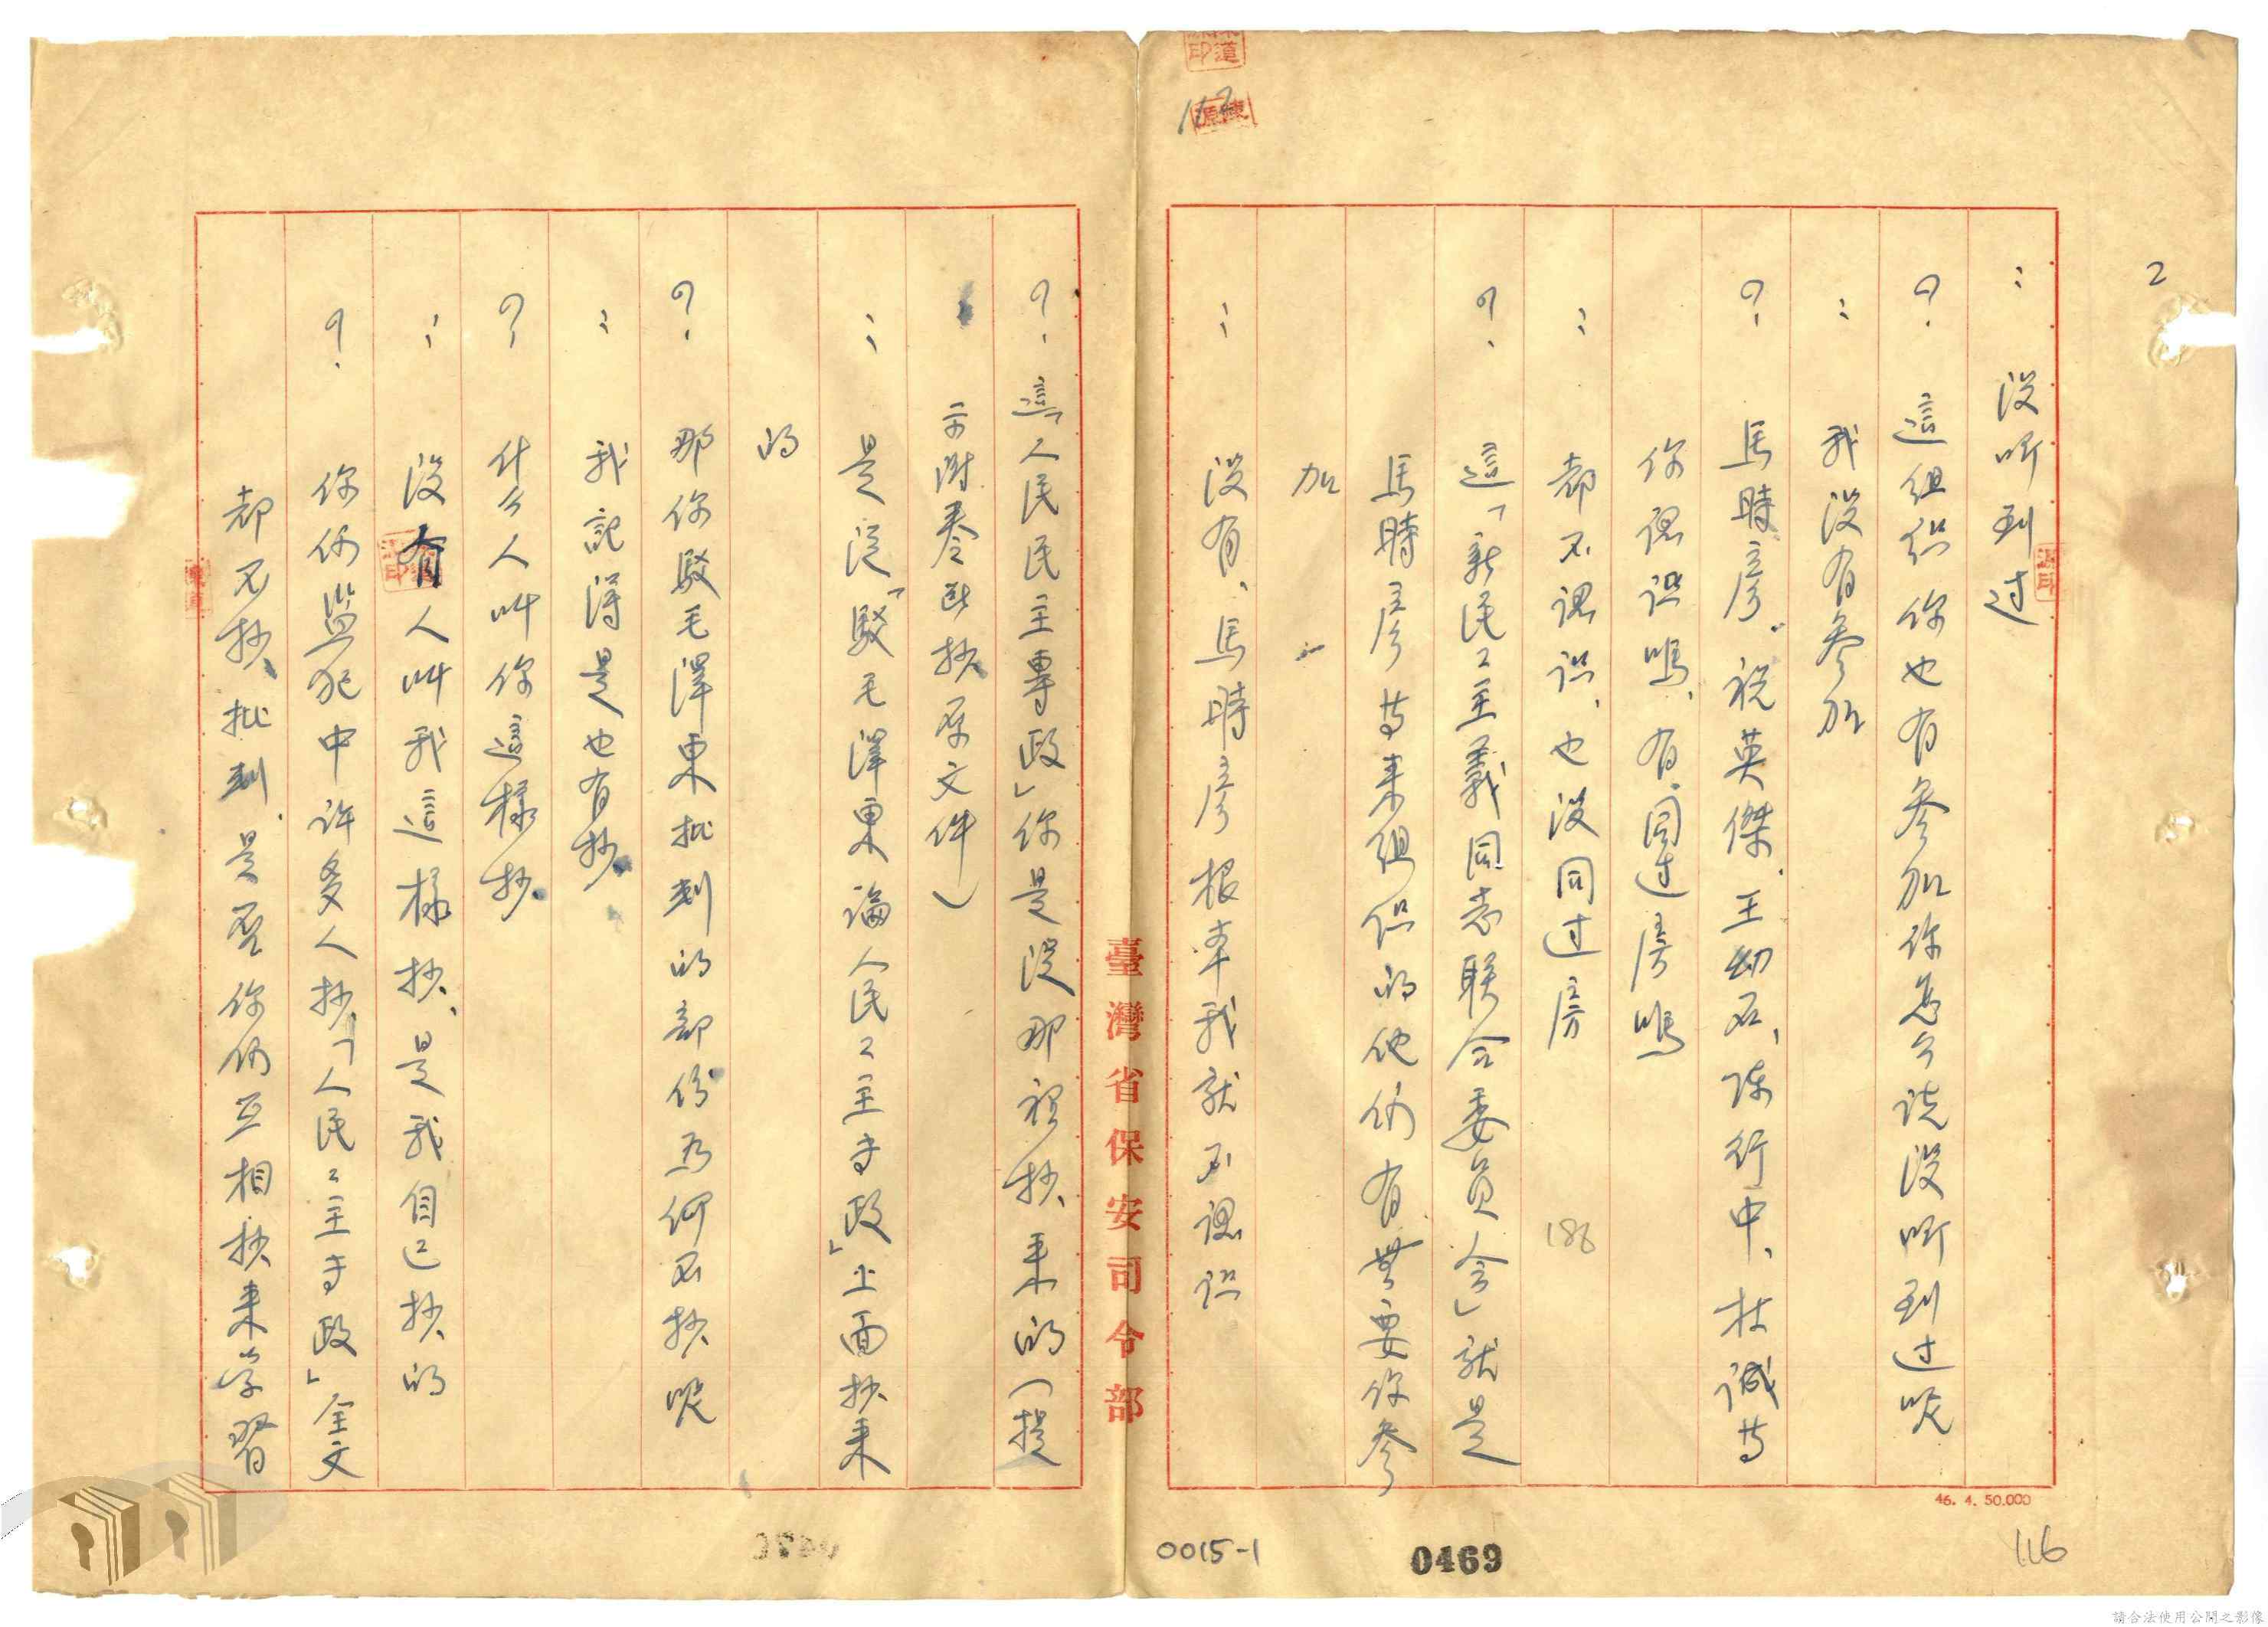 2
：没听到过
？這組织你也有參加你怎么说没听到过呢
：我没有參加
？馬時彥、祝英傑、王幼石、陈行中、杜诚等
你認识嗎、有同过房嗎
：都不認识、也没同过房
？這「新民主主義同志联合委員会」就是
馬時彥等来组织的他们有無要你參
加
：没有、馬時彥根本我就不認识
？這「人民民主專政」你是從那裡抄來的（提
示附卷所抄原文件）
：是從「駁毛澤東論人民民主专政」上面抄来
的
？那你駁毛澤東批判的部份為何不抄呢
：我記得是也有抄
？什么人叫你這樣抄
：没有人叫我這樣抄、是我自己抄的
？你们监犯中許多人抄「人民民主专政」全文
都不抄批判、是否你们互相抄来学習
臺灣省保安司令部
46. 4. 50.000
116
186
0015-1
0469
請合法使用公開之影像